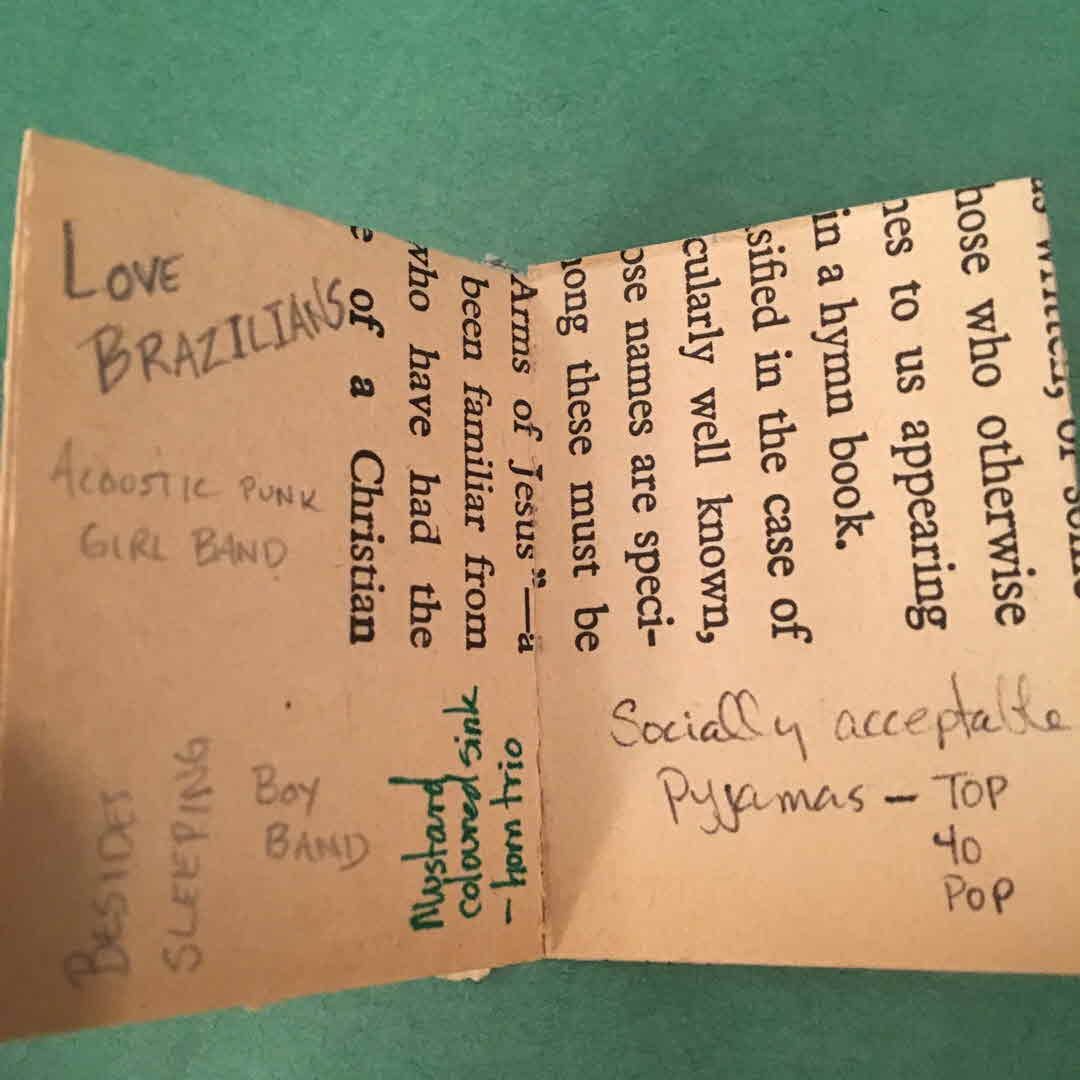 LOVE
BRAZILIANS
ACOUSTIC PUNK
GIRL BAND
BESIDES
SLEEPING
BOY
BAND
Mustard
coloured sink
- horn trio
hose who otherwise
nes to us appearing
in a hymn book.
sified in the case of
cularly well known,
ose names are speci-
ong these must be
Arms of Jesus”—a
been familiar from
who have had the
e of a Christian
Socially acceptable
Pyjamas – TOP
40
POP